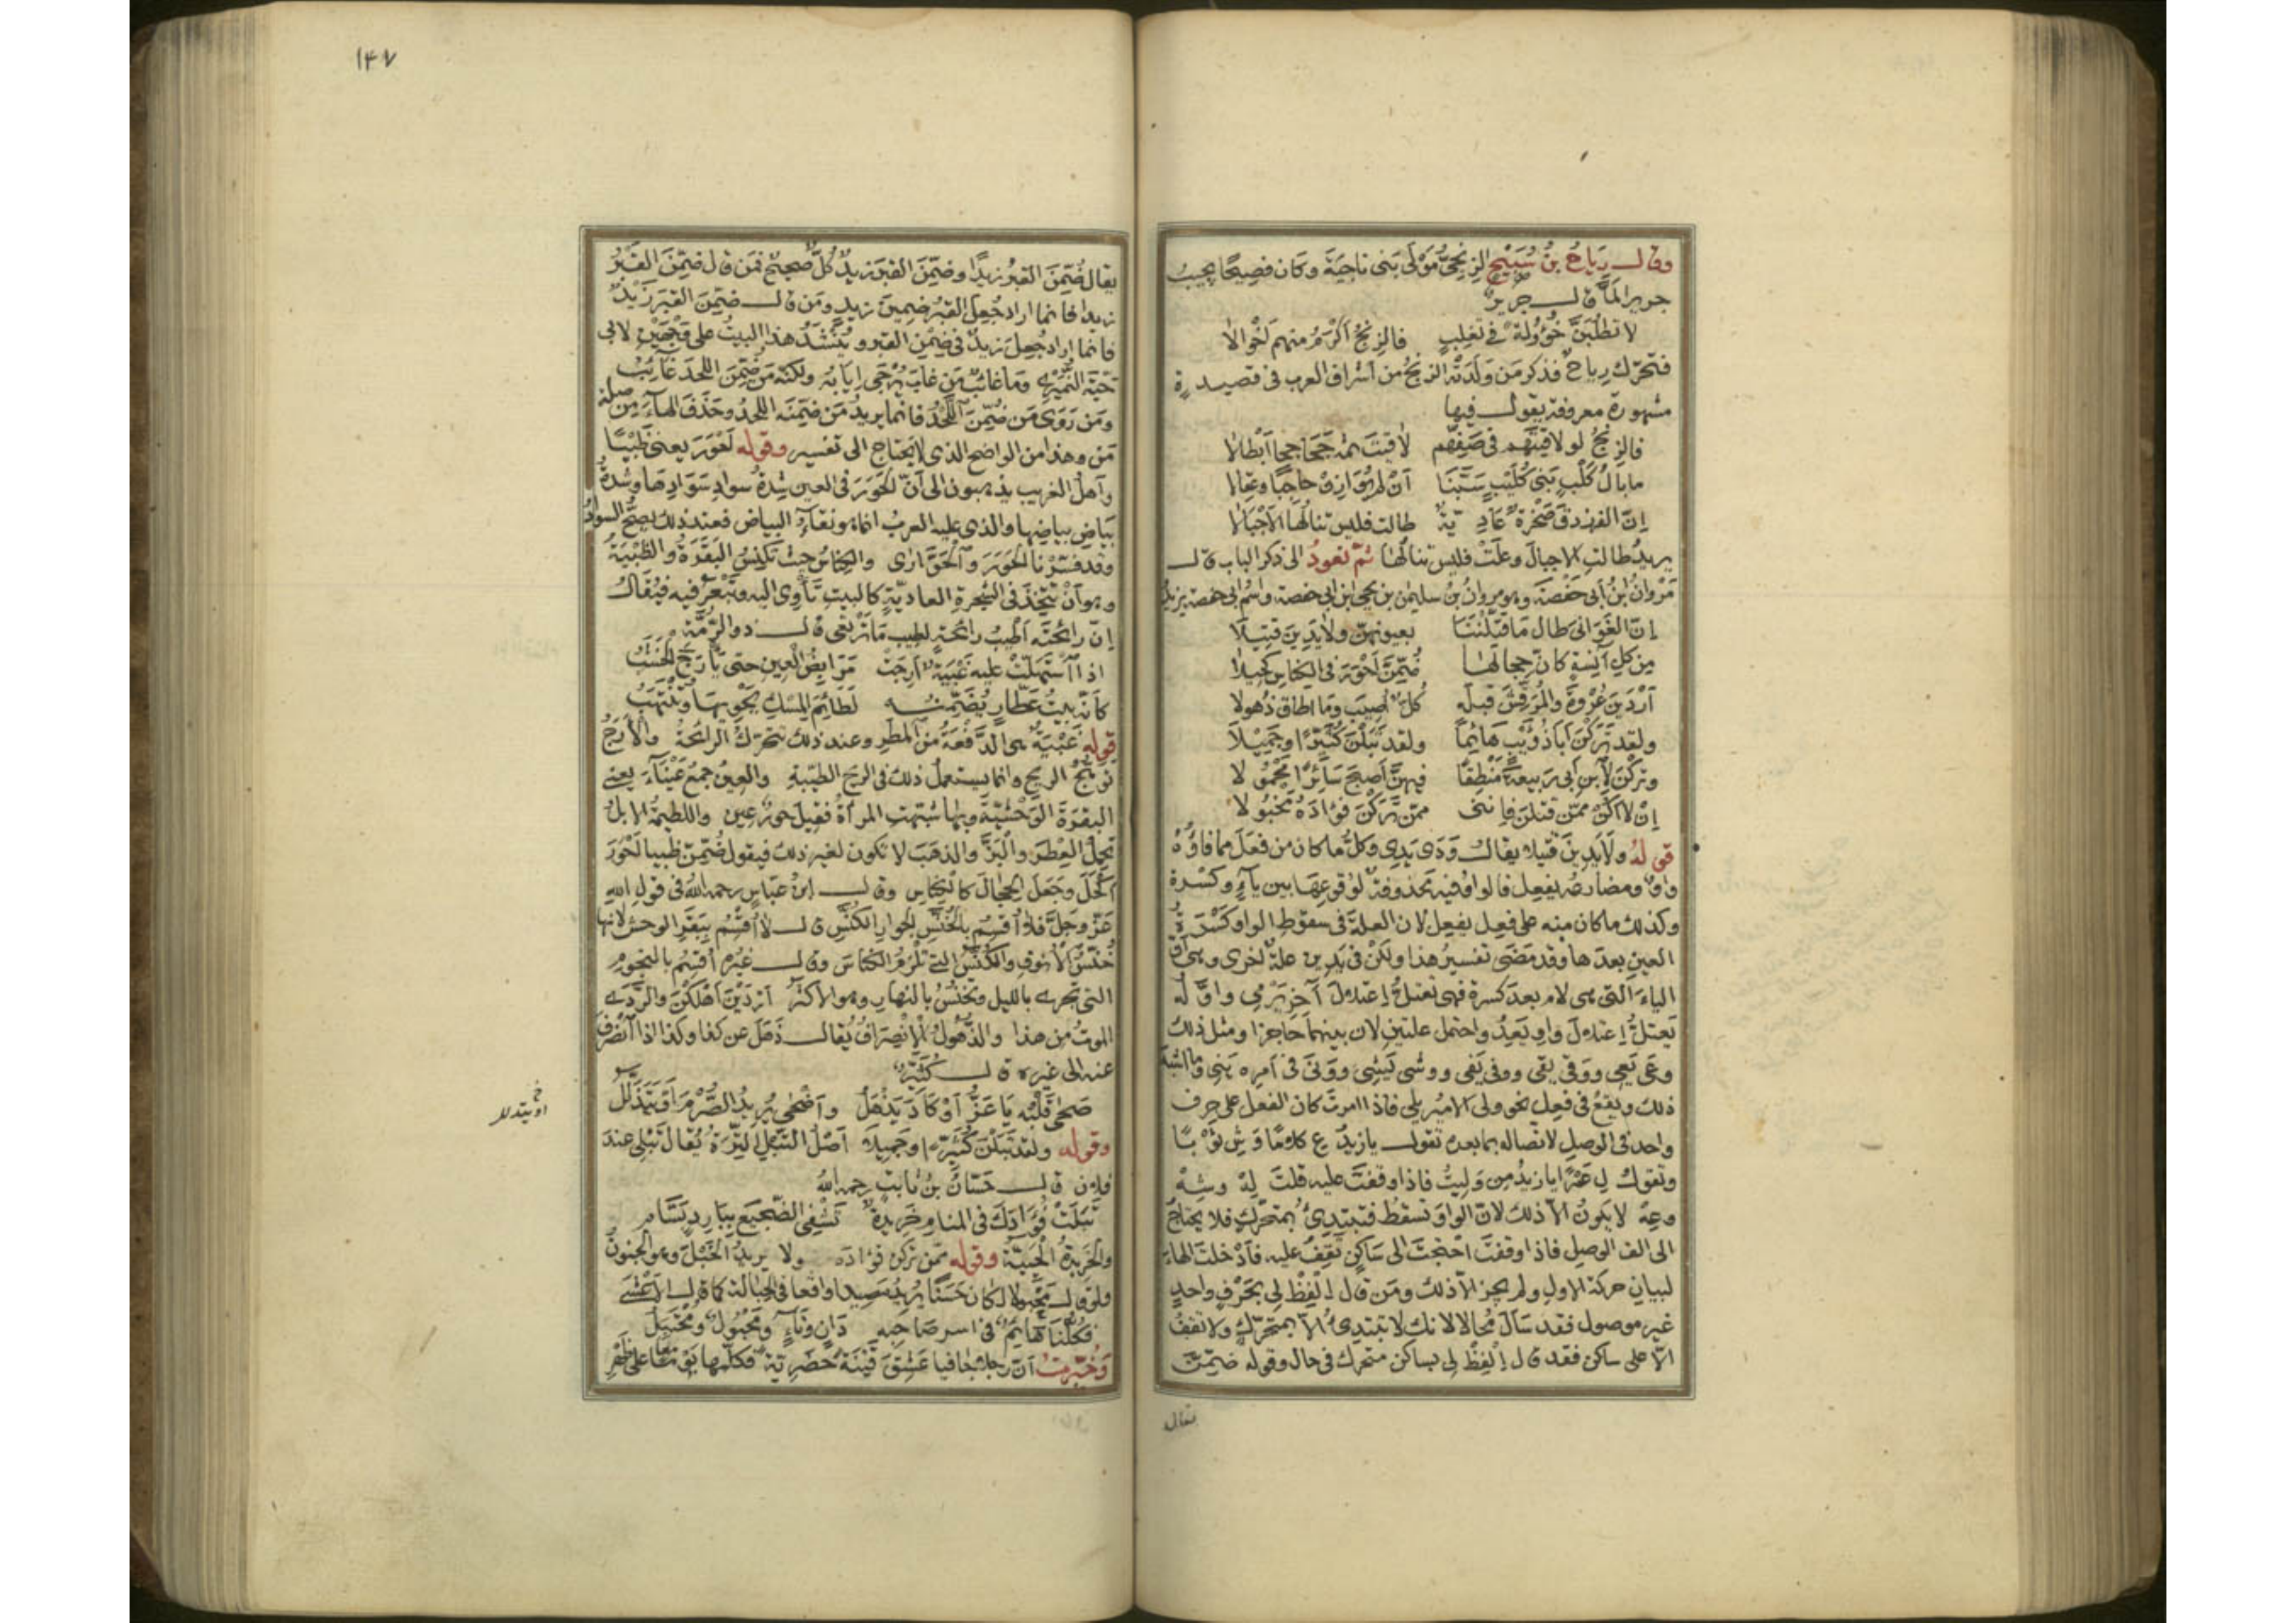 وقال رِيَاحُ بنُ سُبَيْحٍ الزنجيُّ مَوْلَى بَنى ناجِيَة وكان فصيحًا يجيبُ
جريرا لمّا قال جريرٌ
لا تطلُبَنَّ خُؤولةً فى تغلِبٍ فالزنجُ اَكْرَمُ منهم اَخْوالا
فتحرّك رياحٌ فذكر مَن وَلَدَتْه الزنجُ من أشراف العرب فى قصيدةٍ
مشهورة معروفة يقول فيها
فالزنجُ لو لاقيتَهم فى صَفِّهم لاقيتَ ثمّ جَحاجِحًا اَبْطالا
ما بالُ كَلْبِ بَنى كُلَيْبٍ سَبَّنا أنْ لم يُوازِنْ حاجِبًا وعِقالا
إنّ الفرزدقَ صَخْرةٌ عَادِيّةٌ طالت فليس تنالُها الاَجْبالا
يريدُ طالتِ الاجبالَ وعلَتْ فليس تنالُها ثمّ نعودُ الى ذكر الباب قال
مَرْوانُ بنُ أبى حَفْصَة وهو مروانُ بنُ سليمٰن بن يحيى ابن ابى حفصة واسْمُ ابى حفصة يزيدُ
إنّ الغَوَانىَ طال مَا قتّلْنَنَا بعيونهنّ ولا يَدِينَ قَتِيلَا
مِن كلِّ آنِسَةٍ كأنّ حِجالَها ضُمِّنَّ اَحْوَرَ فى الكِناسِ كَحِيلَا
اَرْدَيْنَ عُرْوَةَ والمُرَقِّشَ قبلَه كُلٌّ اُصِيبَ وما اطاق ذُهولا
ولقد تَرَكْنَ اَبَا ذُؤَيْبٍ هَائِمًا ولقد تَبَلْنَ كُثَيِّرًا وجَمِيْلَا
وتركْنَ لِابنِ اَبى رَبيعةَ مَنْطِقًا فيهنَّ اَصبحَ سَائِرًا مَحْمُولا
إن لا اكُنْ ممّن قتلْنَ فإننى ممّن تَرَكْنَ فؤادَهُ مَخْبُولا
قولُه ولَا يَدِينَ قتيلا يقال وَدَى يَدِى وكلُّ ما كان من فعَلَ مما فاؤُهُ
واوٌ ومضارعُه يفعِل فالواوُ فيه محذوفةٌ لوُقوعِهَا بين ياءٍ وكسْرة
وكذلك ما كان منه على فعِل يفعِل لان العلّةَ فى سقوطِ الواو كَسْرَةُ
العينِ بعدَها وقد مَضَى تفسيرُ هذا ولكنْ فى يَدِينَ علّةٌ اخرى وهى أنّ
الياءَ التى هى لام بعدَ كسرة فهى تعتلُّ اعتلالَ آخِرِ يَرْمِى واوّلُه
يَعتلُّ اعتلالَ واوِ يَعِدُ واحتمل علتين لان بينهما حاجزا ومثل ذلك
وعَى يَعِى ووَقَى يقى ووفى يَفى ووشى يَشِى ووَنَى فى اَمرِه يَنى وما اشبهَ
ذلك ويقعُ فى فعِل نحو ولى الاميرُ يلى فاذا امرتَ كان الفعل على حرف
واحد فى الوصلِ لاتصاله بما بعده تقول يا زيدُ عِ كلامًا وَشِ ثَوْبًا
وتقولُ لِ عَمْرًا يا زيدُ مِن وَليتُ فاذا وقفتَ عليه قلتَ لِهْ وشِهْ
وعِهْ لا يكونُ الّا ذلك لانّ الواوَ تسقُط فتبتدِئُ بمتحرِّكٍ فلا يحتاجُ
الى الفِ الوصلِ فاذا وقفتَ احْتَجْتَ الى سَاكنٍ تَقِفُ عليه فاَدْخلتَ الهاءَ
لبيانِ حركة الاول ولم يجز الّا ذلك ومَن قال اِلْفِظْ لِى بحَرْفٍ واحدٍ
غيرِ موصول فقد سَأَلَ مُحالا لانك لا تبتدِئُ الّا بمتحرّكٍ ولا تقفُ
الّا على ساكن فقد قال اِلْفِظْ لِى بساكن متحرك فى حال وقوله ضُمِّنَّ
يقال
١٤٧
يقال ضُمِّنَ القبرُ زيدًا وضُمِّنَ القبرَ زيدٌ كُلٌّ صحيحٌ فمَن قال ضُمِّنَ القبرُ
زيدا فانما اراد جُعِلَ القبرُ ضمِينَ زيدٍ ومَن قال ضُمِّنَ القبرَ زَيْدٌ
فانما اراد جُعِلَ زيدٌ فى ضِمْنِ القبر ويُنْشَدُ هذا البيتُ على وَجْهَيْنِ لابى
حَيّةَ النُّمَيْرِى وما غائبٌ مَن غاب يُرْجَى إيَابُه ولكنّه مَن ضُمِّنَ اللحدَ غَائِبُ
ومَن رَوَى مَن ضُمِّنَ اللَّحْدُ فانما يريدُ مَن ضُمِّنَه اللحدُ وحَذَفَ الهاءَ مِن صلة
مَن وهذا من الواضحِ الذى لا يَحتاج الى تفسير وقوله اَحْوَرَ يعنى ظَبْيًا
وأهلُ الغريب يذهبون الى اَنّ الحَوَرَ فى العين شِدّةُ سوادِ سَوَادِهَا وشدةُ
بَيَاضِ بياضِها والذى عليه العربُ انما هو نقاءُ البياض فعند ذلك يصحّ السوادُ
وقد فسّرْنا الحَوَرَ وَالحَوَارَى والكِناسُ حيثُ تكنِسُ البَقَرةُ والظَّبْيَةُ
وهو اَنْ تَتّخذَ فى الشجرةِ العاديّةِ كالبيتِ تَأوِى اليه وتَبْعَرُ فيه فيُقَالُ
إنّ رائحتَه اَطْيبُ رائحةٍ لطيبِ مَا ترْتعى قال ذو الرُّمَّة
اذا اسْتَهَلّتْ عليه غَبْيَةٌ اَرِجَتْ مَرَابِضُ العِينِ حتى يَأرَجَ الخَشَبُ
كاَنّه بيتُ عَطّارٍ يُضَمِّنُه لَطَائِمَ المِسْكِ يَحْوِيها وتُنْتَهَبُ
قوله غَبْيَةٌ هى الدُّفْعَةُ مِن المطرِ وعند ذلك تتحرّكُ الرائحةُ والأَرَجُ
تَوَهُّجُ الريحِ وانما يستعملُ ذلك فى الريح الطيّبةِ والعِينُ جمعُ عَيْنَاءَ يعنى
البقرَةَ الوَحْشيّةَ وبها شُبّهتِ المرأةُ فقيل حورٌ عين واللطيمةُ الابلُ
تحمِلُ العِطْرَ والبَزَّ والذهَبَ لا تكون لغير ذلك فيقول ضُمِّنَّ ظبيا اَحْوَرَ
اَكْحَلَ وجَعَلَ الحِجَالَ كالكِناسِ وقال ابنُ عبّاسٍ رحمه اللهُ فى قولِ اللهِ
عَزّ وجَلّ فلا اُقْسِمُ بالخُنَّسِ الجوارِ الكُنَّسِ قال لا اُقْسِمُ بِبَقَرِ الوحش لانها
خُنْسُ الاُنُوفِ والكُنَّسُ التى تلْزَمُ الكناسَ وقال غيرُه اُقْسِمُ بالنجومِ
التى تجرى بالليلِ وتَخْنِسُ بالنهارِ وهو الاكثرُ اَرْدَيْنَ اَهْلَكْنَ والرَّدَى
الموتُ من هذا والذُّهولُ الاِنْصِرافُ يُقال ذَهَلَ عن كذا وكذا اذا انصَرَفَ
عنه الى غيره قال كُثَيِّرٌ
صَحَى قلْبُه يَا عَزُّ اَوْ كَادَ يَذْهَلُ وأَضْحَى يُريدُ الصَّرْمَ اَوْ يَتَدَلَّلُ
او يتدلل
وقوله ولقد تَبَلْنَ كُثَيِّرًا وجَميلَا اَصْلُ التَّبْلِ التِّرَةُ يُقال تَبْلِى عندَ
فلان قال حَسّانُ بنُ ثابتٍ رحمه اللهُ
تَبَلَتْ فُؤَادَكَ فى المنامِ خَرِيدةٌ تَشْفِى الضّجيعَ ببارِدٍ بَسّامِ
والخَرِيدةُ الحَيِيّةُ وقوله ممّن تركن فؤادَه ولا يريدُ الخَبْلَ وهو الجنونُ
ولو قال مَحْبولا لكان حَسَنًا يُرِيدُ مَصِيدا واقعا فى الحِبَالةِ كما قال الاَعْشَى
فكُلُّنَا هَائِمٌ فى اسر صاحبِه دَانٍ ونَاءٍ ومَحْبُولٌ ومُحْتَبِلُ
وَخُبِّرتُ اَنّ رجلا جافيا عَشِقَ قَيْنَةً حَضَرِيّةً فكلّمها يَوْمًا على ظَهْرِ